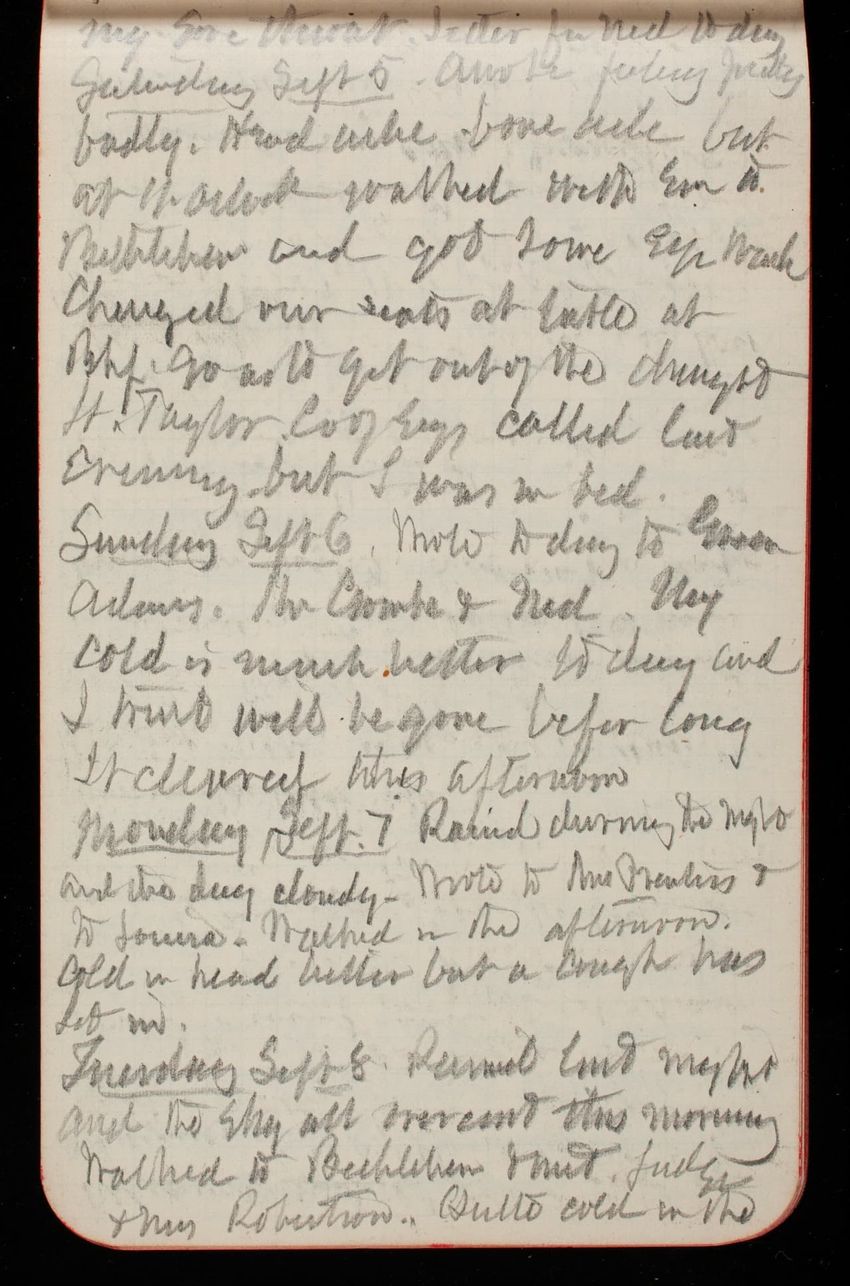 my sore throat. Letter fm Ned to day
Saturday Sept 5. Awoke feeling pretty
badly. Head ache bone ache but
at 11 oclock walked with Em to
Bethlehem and got some Eye Wash
Changed our seats at table at
Bkf. So as to get out of the draught
Lt. Taylor. C of Engs called last
Evening but I was in bed.
Sunday Sept 6. Wrote to day to
Adams. & Ned. My
Cold is much better to day and
I trust will be gone before long
It cleared this afternoon
Monday Sept. 7 Raind during the night
and the day cloudy. Wrote to Mrs Prentiss &
to Louisa. Walked in the afternoon.
Cold in head better but a cough has
set in.
Tuesday Sept 8 Rained last night
and the sky all overcast this morning
Walked to Bethlehem & met Judge
& Mrs Robertson. Quite cold in the